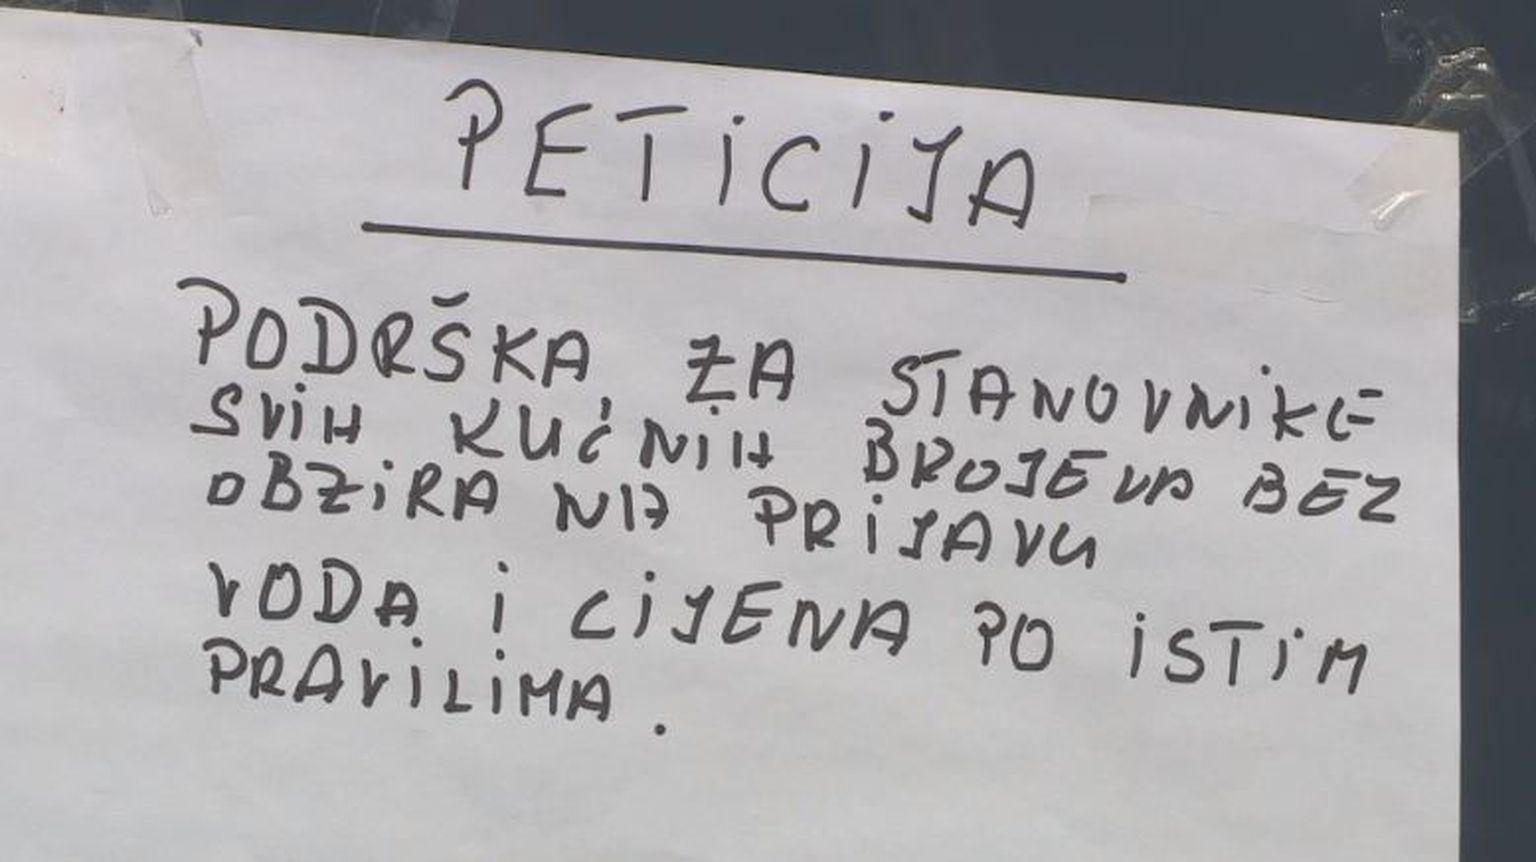 PETICIJA
PODRŠKA ZA STANOVNIKE
SVIH KUĆNIH BROJEVA BEZ
OBZIRA NA PRIJAVU
VODA I CIJENA PO ISTIM
PRAVILIMA.